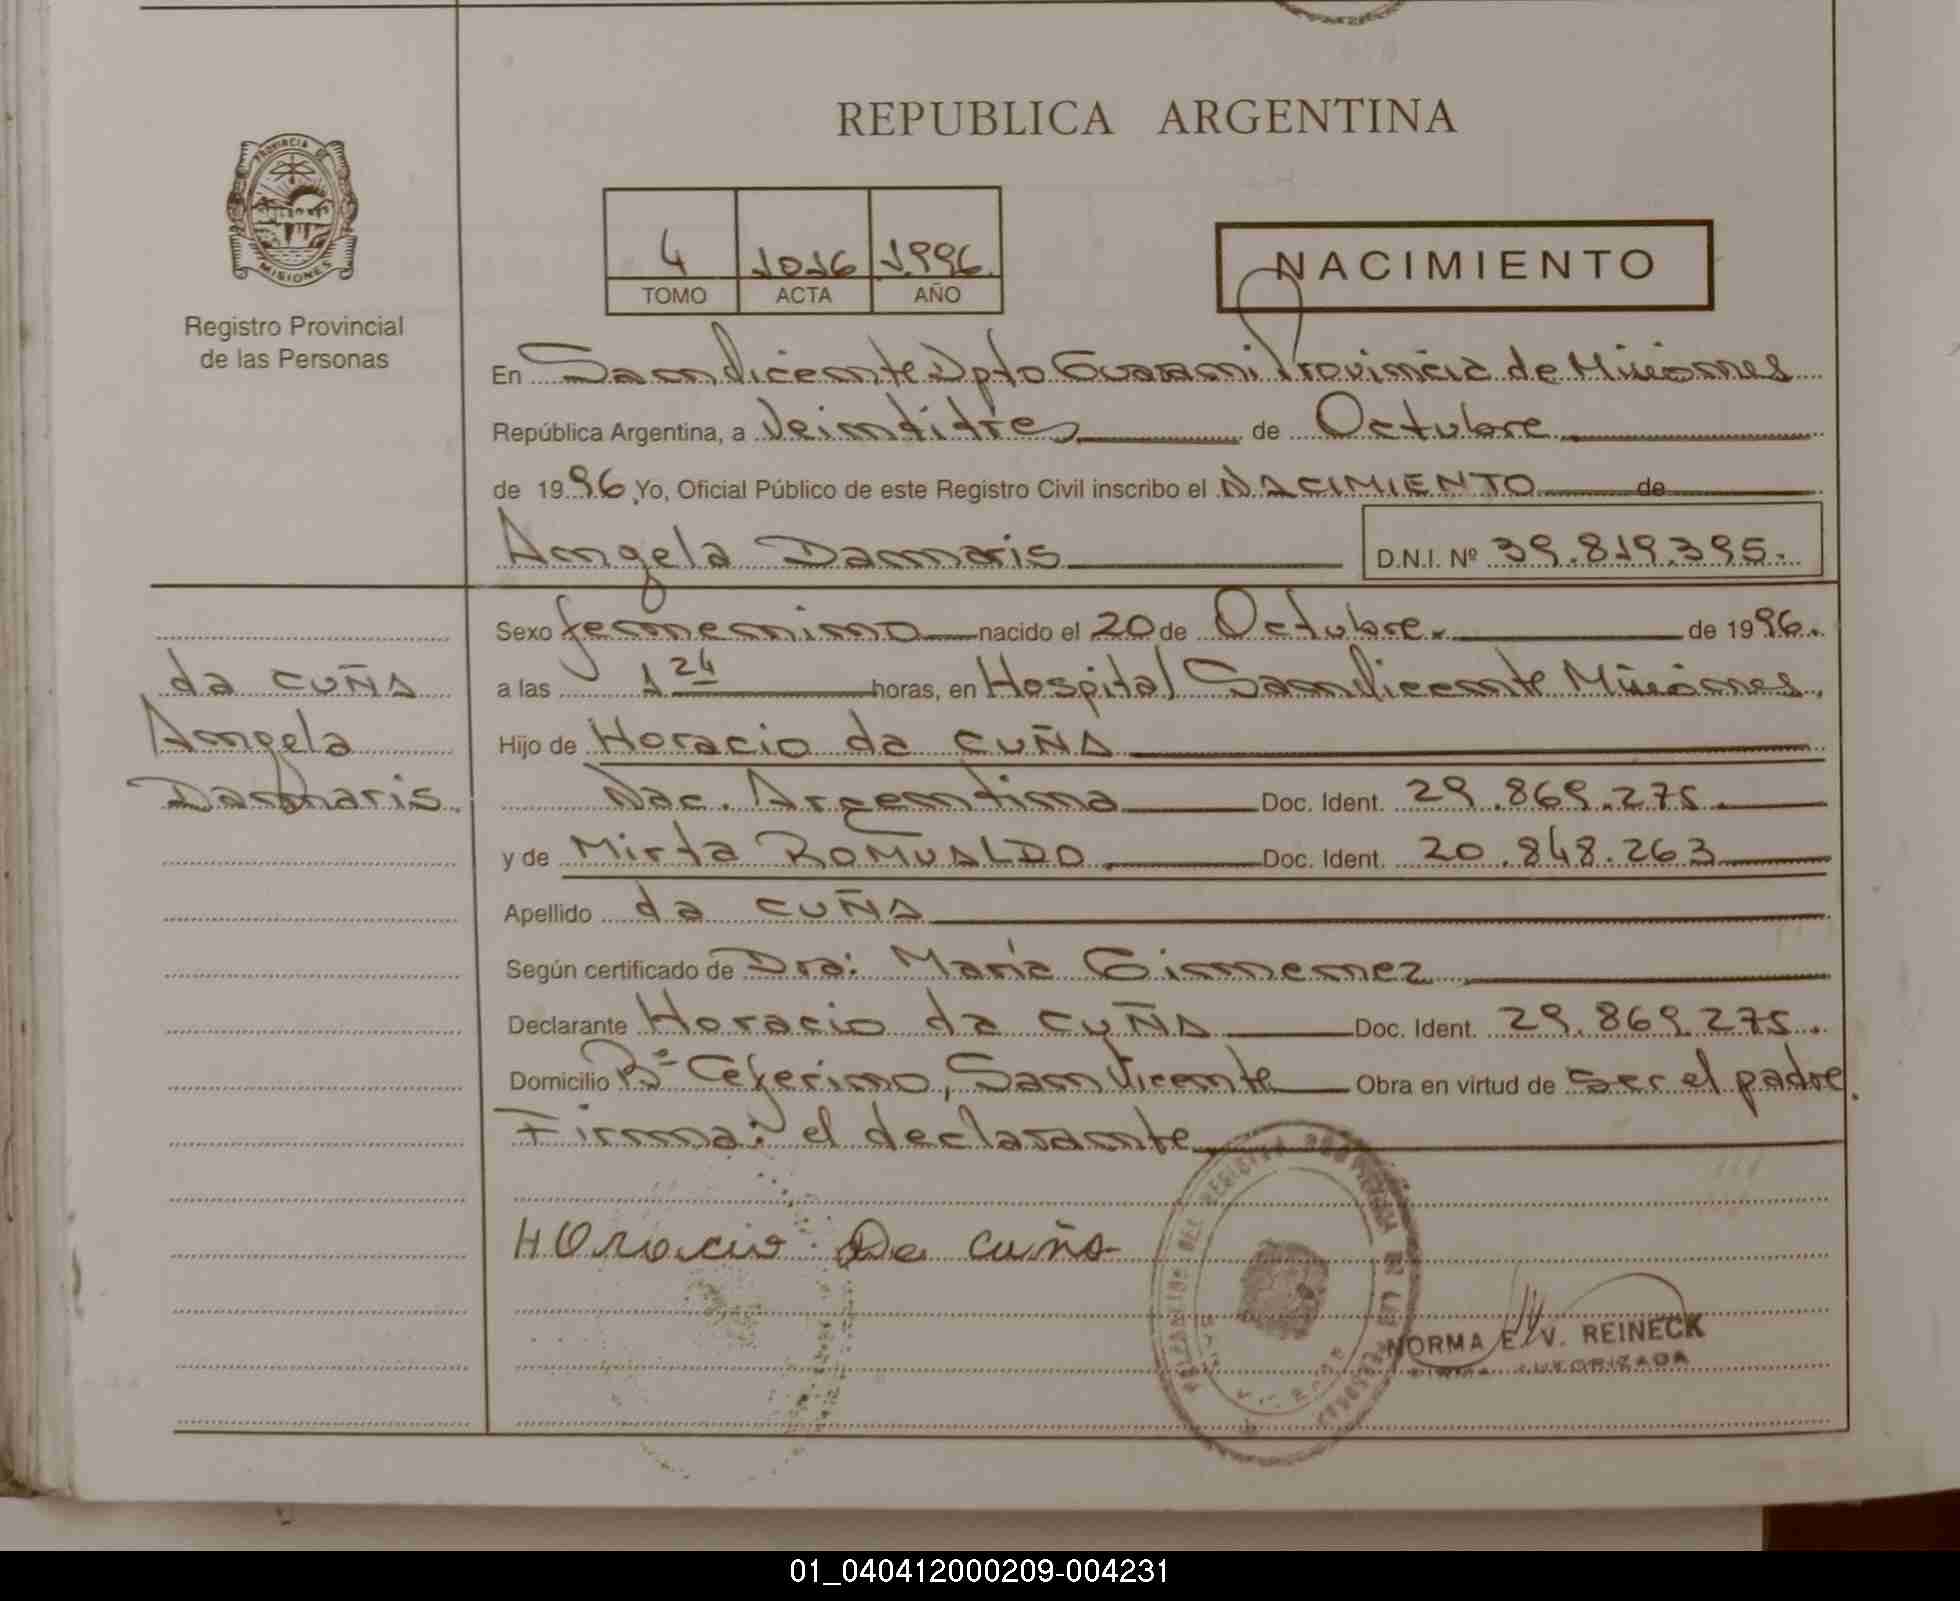 REPUBLICA ARGENTINA
PROVINCIA DE
MISIONES
Registro Provincial
de las Personas
4 1016 1.996.
TOMO ACTA AÑO
NACIMIENTO
En San Vicente Dpto Guarani Provincia de Misiones
República Argentina, a Veintitrés de Octubre
de 1996 Yo, Oficial Público de este Registro Civil inscribo el NACIMIENTO de
Angela Damaris D.N.I. Nº 39.819.395.
Sexo femenino nacido el 20 de Octubre. de 1996.
da CUÑA
Angela
Damaris.
a las 1 24 horas, en Hospital San Vicente Misiones.
Hijo de Horacio da CUÑA
Nac. Argentina Doc. Ident. 29.869.275.
y de Mirta ROMUALDO. Doc. Ident. 20.848.263
Apellido da CUÑA
Según certificado de Dra: María Gimenez
Declarante Horacio da CUÑA Doc. Ident. 29.869.275.
Domicilio Bº Ceferino, San Vicente Obra en virtud de ser el padre.
Firma: el declarante
HOracio Da cuña
NORMA E. V. REINECK
FIRMA AUTORIZADA
01_040412000209-004231